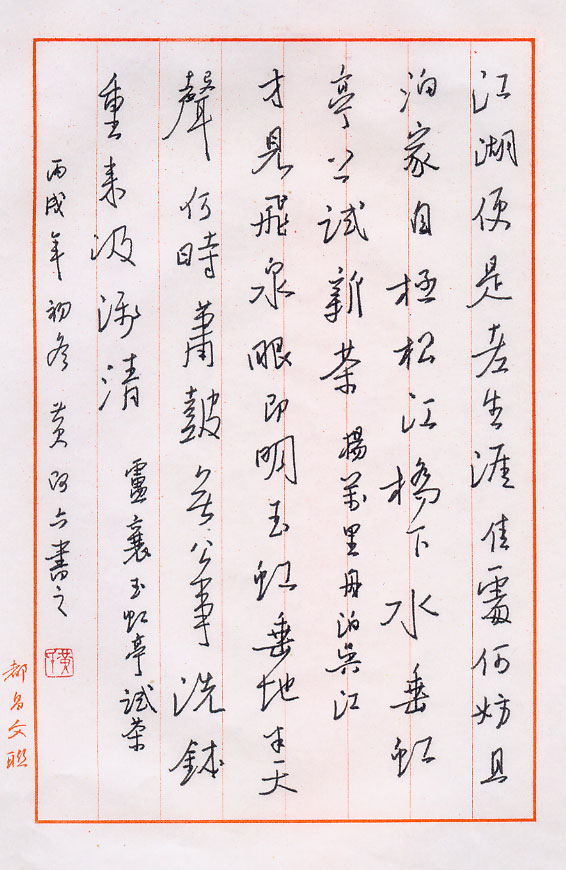 江湖便是老生涯佳處何妨且
泊家自极松江橋下水垂虹
亭上試新茶 楊萬里舟泊吳江
才見飛泉眼即明玉虹垂地半天
聲何時蕭鼓無公事洗鉢
重来汲清 盧襄玉虹亭試茶
丙戌年初冬 黄阿六書之
都昌文聯